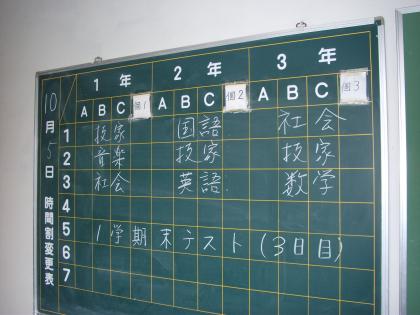 1年 2年 3年
A B C 個1 A B C 個2 A B C 個3
10月5日 時間割変更表
1 技家 国語 社会
2 音楽 技家 技家
3 社会 英語 数学
4
5 1学期末テスト(3日目)
6
7